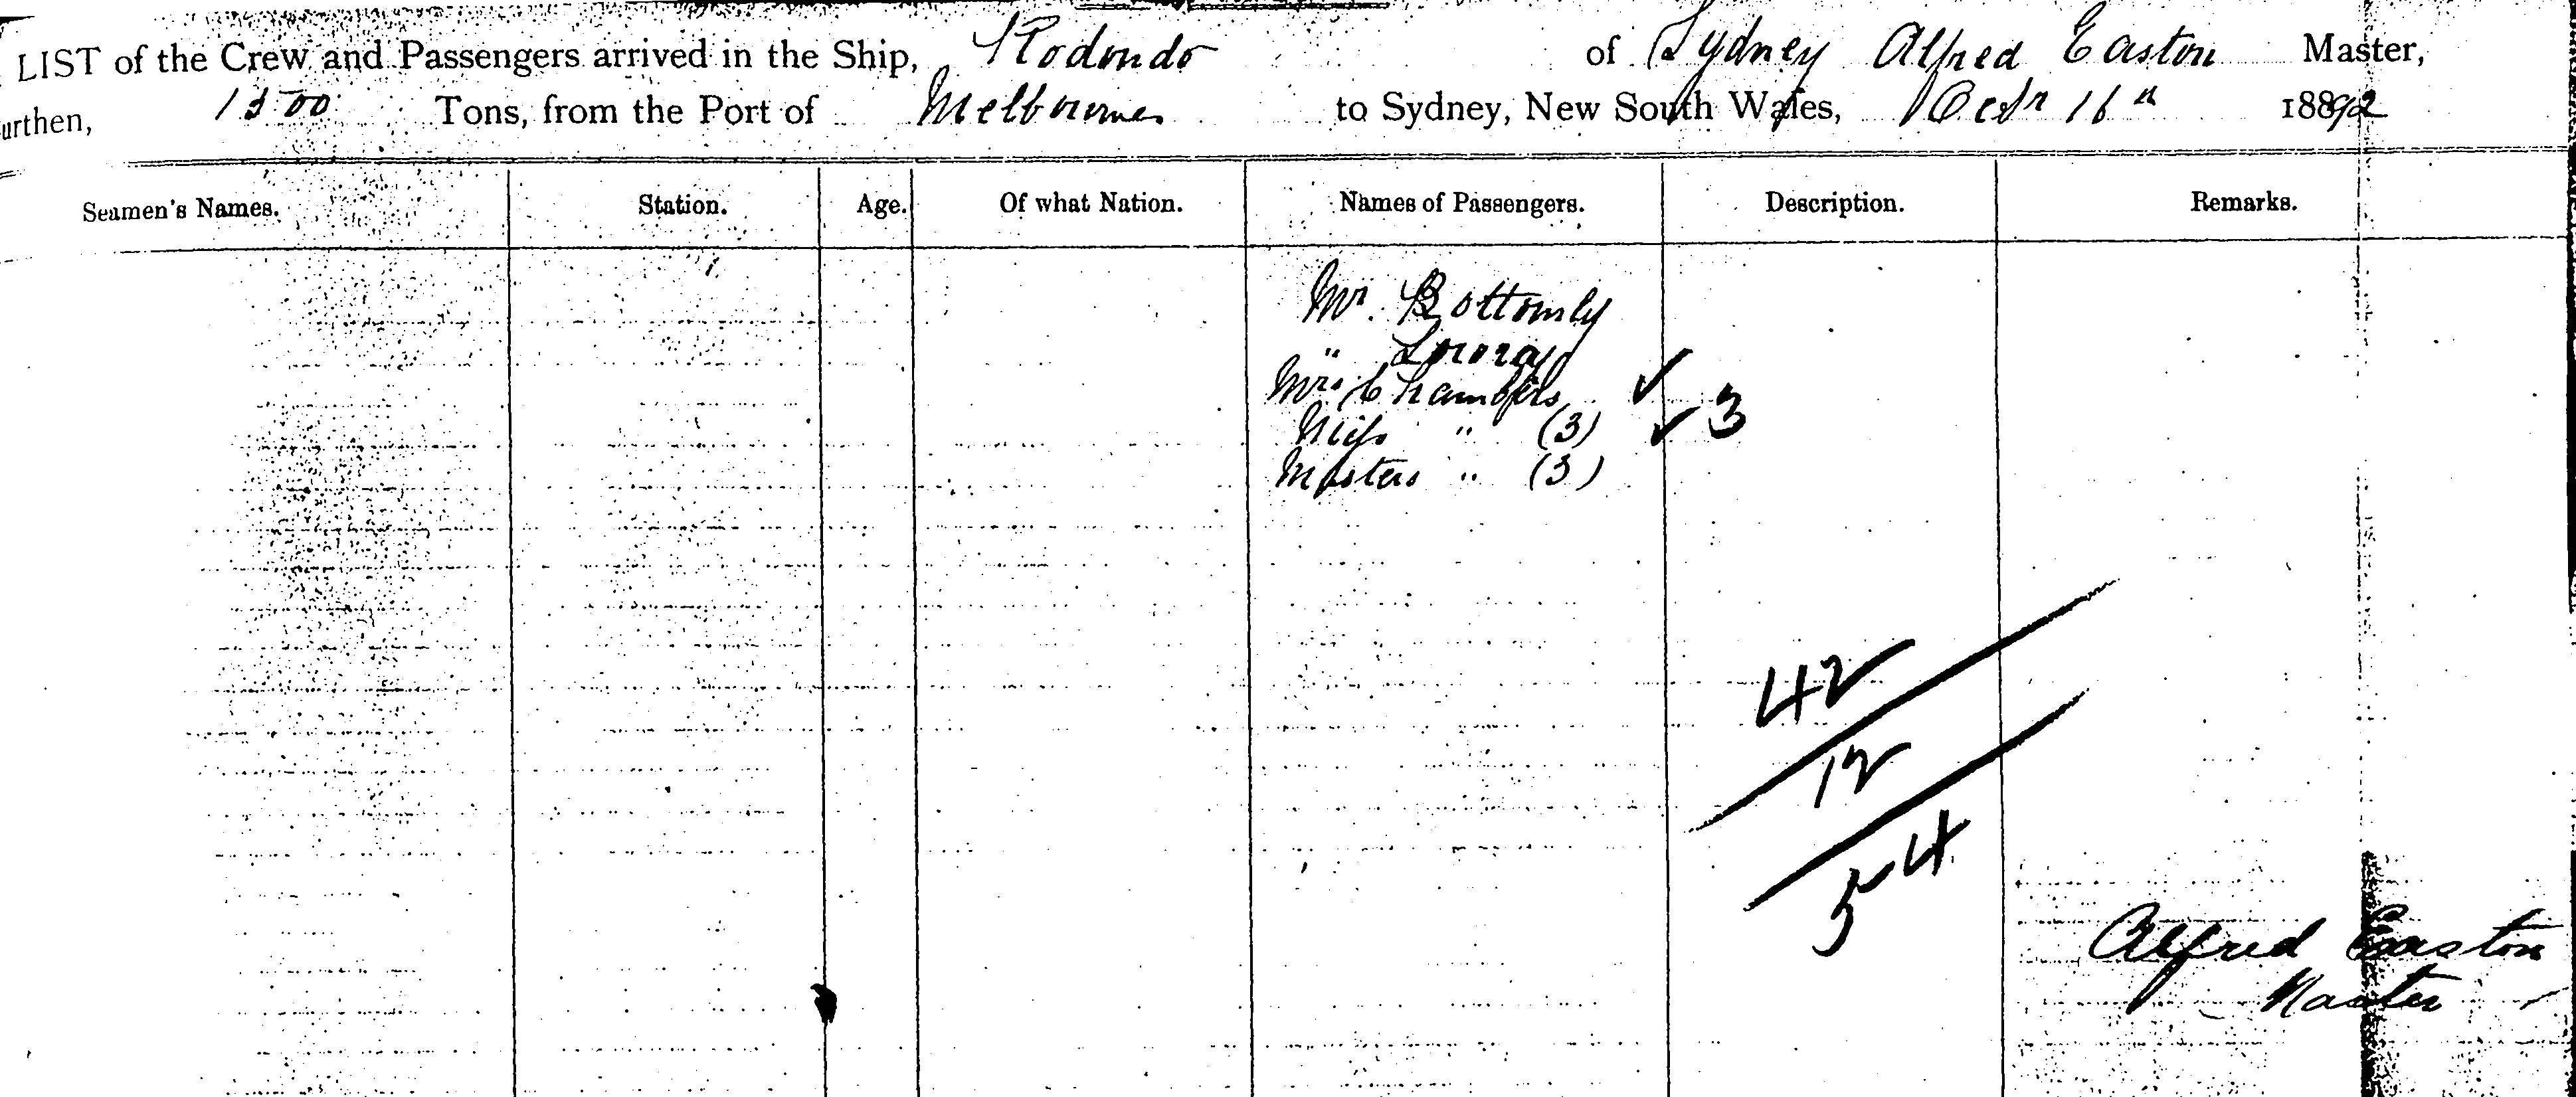 LIST of the Crew and Passengers arrived in the Ship, Rodondo of Sydney Alfred Easton Master,
urthen, 1300 Tons, from the Port of Melbourne to Sydney, New South Wales, Octr 16th 1892
Seamen's Names. Station. Age. Of what Nation. Names of Passengers. Description. Remarks.
Mr. Bottomly
"
Mrs Chambers
Miss " (3) 3
Masters " (3)
42
12
54
Alfred Easton
Master